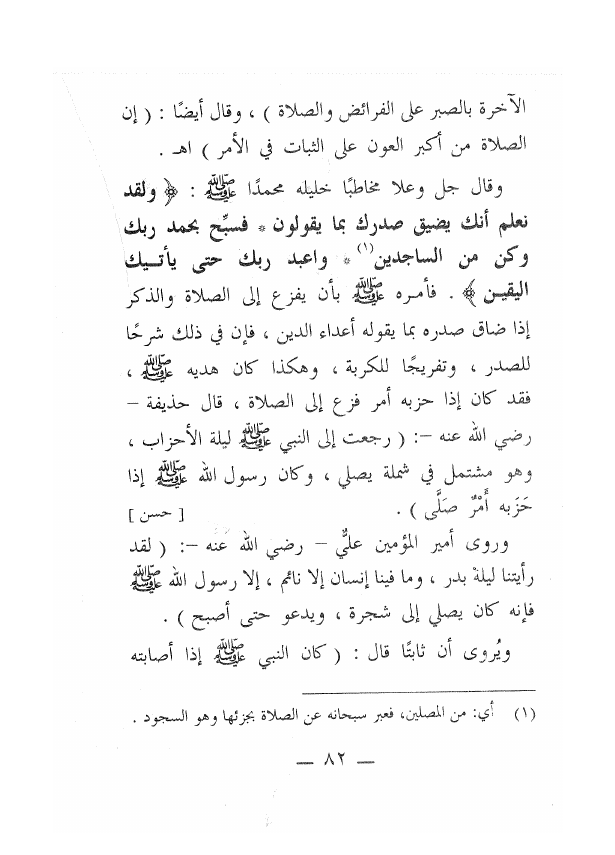 الآخرة بالصبر على الفرائض والصلاة ) ، وقال أيضًا : ( إن
الصلاة من أكبر العون على الثبات في الأمر ) اهـ .
وقال جل وعلا مخاطبًا خليله محمدًا ﷺ : ﴿ ولقد
نعلم أنك يضيق صدرك بما يقولون * فسبِّح بحمد ربك
وكن من الساجدين(١) * واعبد ربك حتى يأتـيك
اليقيـن ﴾ . فأمـره ﷺ بأن يفزع إلى الصلاة والذكر
إذا ضاق صدره بما يقوله أعداء الدين ، فإن في ذلك شرحًا
للصدر ، وتفريجًا للكربة ، وهكذا كان هديه ﷺ ،
فقد كان إذا حزبه أمر فزع إلى الصلاة ، قال حذيفة –
رضي الله عنه –: ( رجعت إلى النبي ﷺ ليلة الأحزاب ،
وهو مشتمل في شملة يصلي ، وكان رسول الله ﷺ إذا
حَزَبه أَمْرٌ صَلَّى ) . [ حسن ]
وروى أمير المؤمين عليٌّ – رضي الله عنه –: ( لقد
رأيتنا ليلةَ بدر ، وما فينا إنسان إلا نائم ، إلا رسول الله ﷺ
فإنه كان يصلي إلى شجرة ، ويدعو حتى أصبح ) .
ويُروى أن ثابتًا قال : ( كان النبي ﷺ إذا أصابته
(١) أي: من المصلين، فعبر سبحانه عن الصلاة بجزئها وهو السجود .
— ٨٢ —